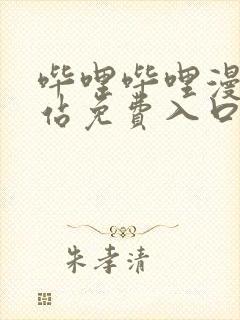 哔哩哔哩漫
佔免费入口
朱孝清